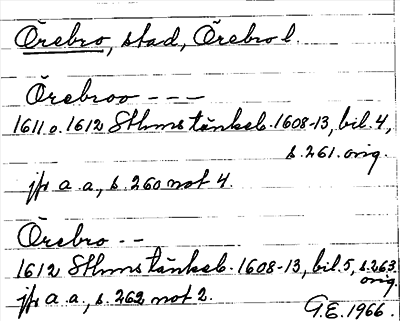 Örebro, stad, Örebro l.
Örebroo - - -
1611 o. 1612 Sthms tänkeb. 1608-13, bil. 4,
s. 261. orig.
jfr a. a., s. 260 not 4.
Örebro - -
1612 Sthms tänkeb. 1608-13, bil. 5, s. 263
orig.
jfr a. a., s. 262 not 2.
G.E. 1966.